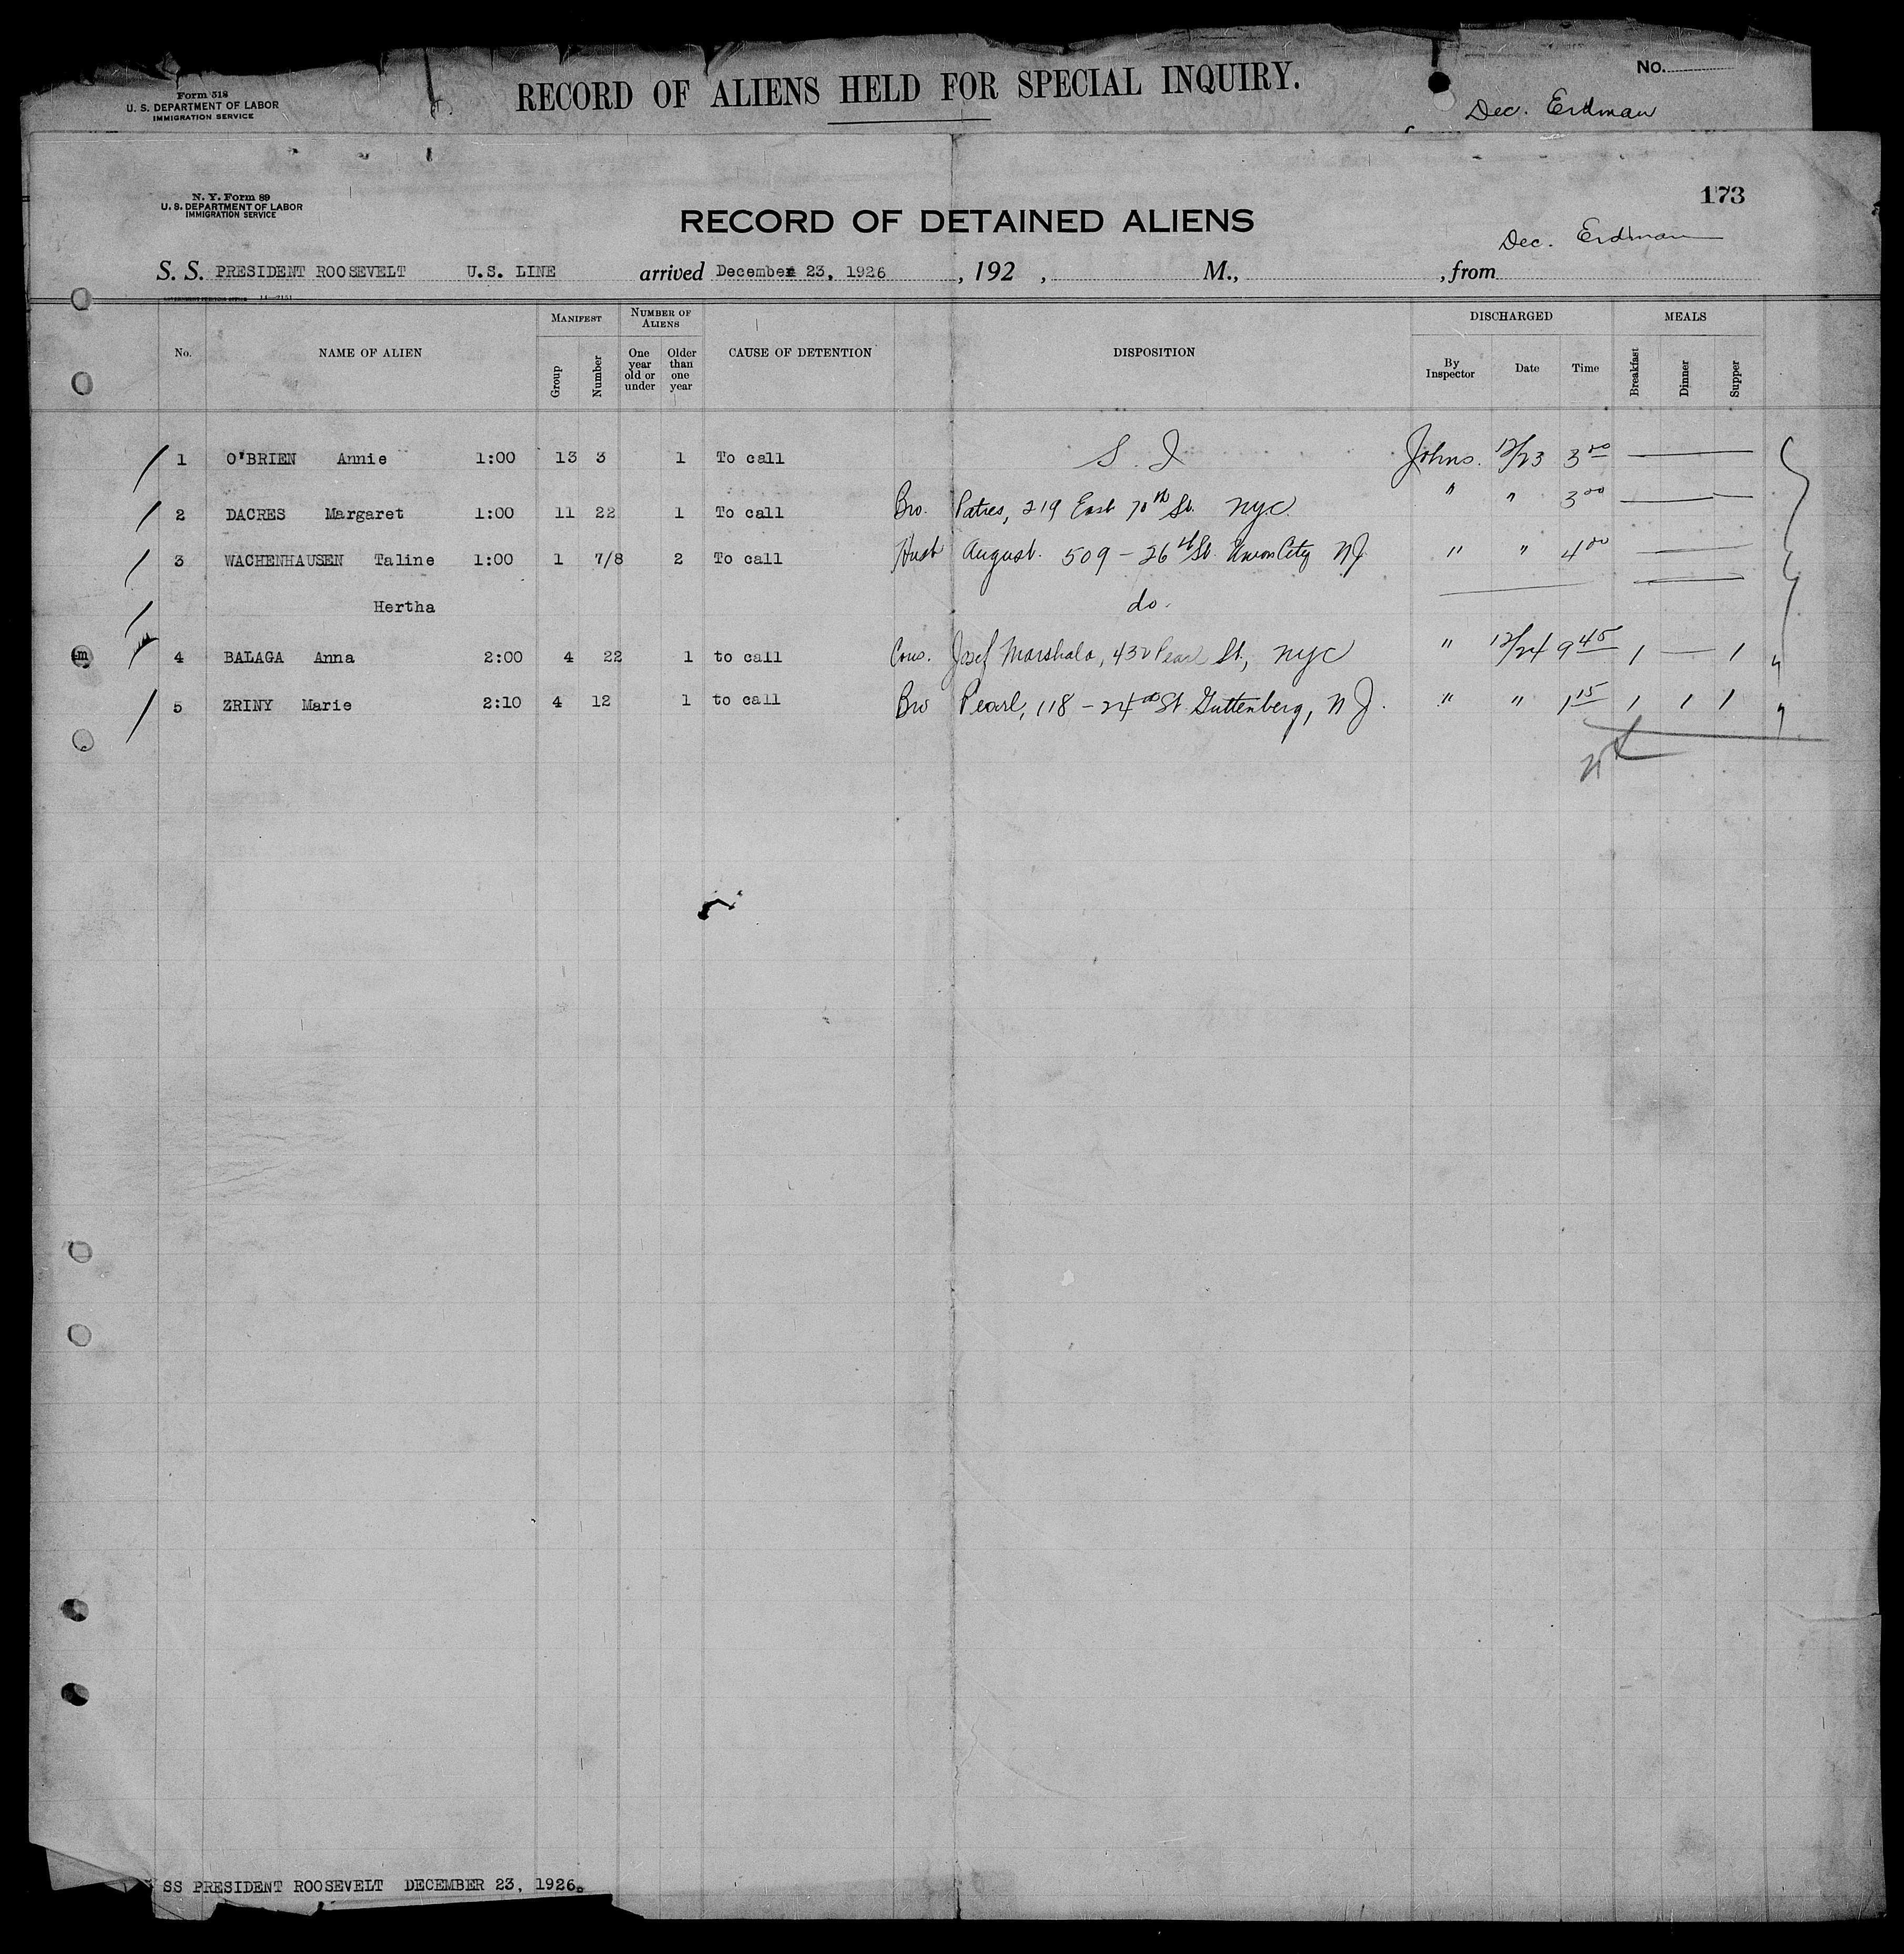 Form 318
U. S. DEPARTMENT OF LABOR
IMMIGRATION SERVICE
RECORD OF ALIENS HELD FOR SPECIAL INQUIRY.
No.
Dec. Erdman
N. Y. Form 89
U. S. DEPARTMENT OF LABOR
IMMIGRATION SERVICE
173
RECORD OF DETAINED ALIENS
Dec. Erdman
S. S. PRESIDENT ROOSEVELT U.S. LINE arrived December 23, 1926, 192 , M., , from
No. NAME OF ALIEN MANIFEST Group Number NUMBER OF ALIENS One year old or under Older than one year CAUSE OF DETENTION DISPOSITION DISCHARGED By Inspector Date Time MEALS Breakfast Dinner Supper
1 O'BRIEN Annie 1:00 13 3 1 To call S. I Johns. 12/23 3 00
2 DACRES Margaret 1:00 11 22 1 To call Bro. 219 East 70th St. NYC. " " 3 00
3 WACHENHAUSEN Taline 1:00 1 7/8 2 To call Husb August. 509 - 26th St. Union City NJ. " " 4 00
Hertha do.
4 BALAGA Anna 2:00 4 22 1 to call Cous. Josef Marshala, 432 Pearl St, NYC " 12/24 9 45 1 — 1 "
5 ZRINY Marie 2:10 4 12 1 to call Bro Pearl, 118 - 24th St. Guttenberg, N J. " " 1 15 1 1 1 "
m
SS PRESIDENT ROOSEVELT DECEMBER 23, 1926.